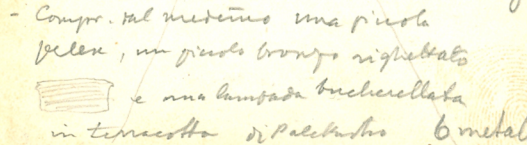 - Compr. dal medesimo una piccola
pelex, un piccolo bronzo righettato
e una lampada bucherellata
in terracotta di Palekastro 6 metal